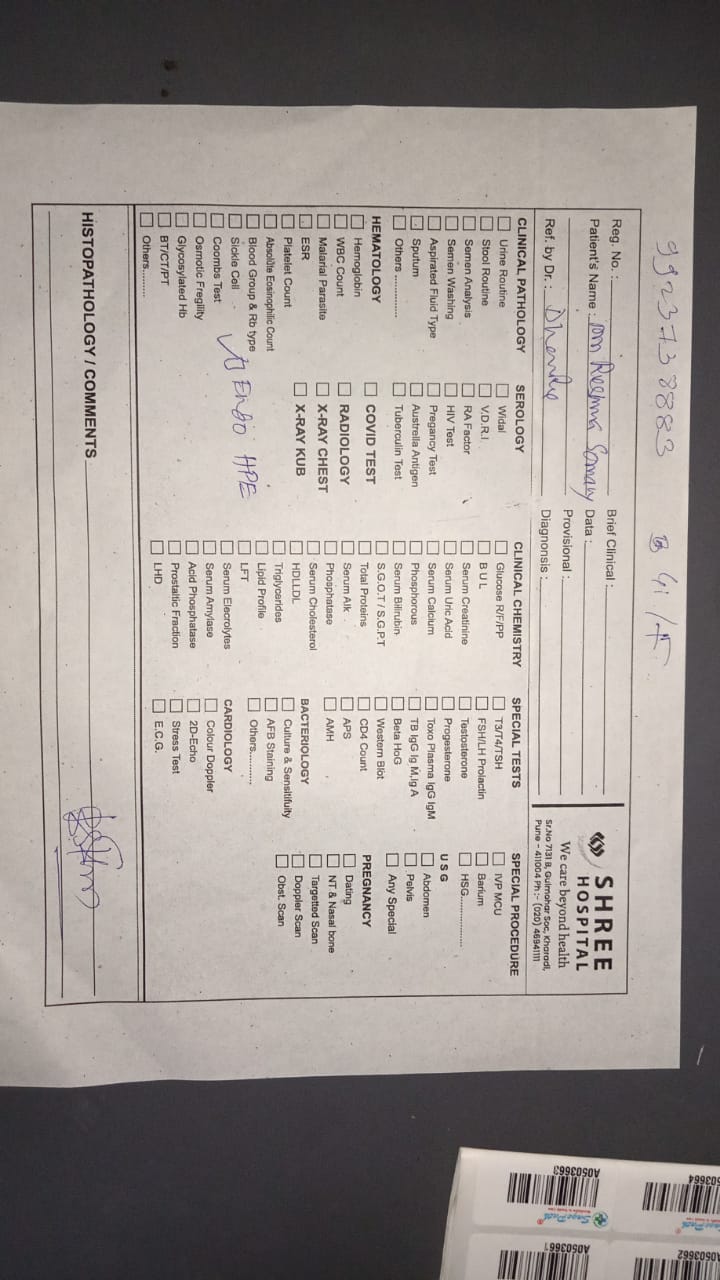 9923738883
41 / F
Reg. No. :
Patient's Name :
Ref. by Dr. :
Brief Clinical :
Data :
Provisional :
Diagnonsis :
SHREE
HOSPITAL
We care beyond health
Sr.No 7131 B, Gulmohar Soc, Kharadi,
Pune - 411004 Ph :- (020) 46941111
CLINICAL PATHOLOGY
Urine Routine
Stool Routine
Semen Analysis
Semen Washing
Aspirated Fluid Type
Sputum
Others .............
HEMATOLOGY
Hemoglobin
WBC Count
Malarial Parasite
ESR
Platelet Count
Absolute Eosinophilic Count
Blood Group & Rb type
Sickle Cell
Coombs Test
Osmotic Fregility
Glycosylated Hb
BT/CT/PT
Others.........
SEROLOGY
Widal
V.D.R.I.
RA Factor
HIV Test
Pregancy Test
Austrella Antigen
Tuberculin Test
COVID TEST
RADIOLOGY
X-RAY CHEST
X-RAY KUB
Endo HPE
CLINICAL CHEMISTRY
Glucose R/F/PP
B U L
Serum Creatinine
Serum Uric Acid
Serum Calcium
Phosphorous
Serum Bilirubin
S.G.O.T / S.G.P.T
Total Proteins
Serum Alk
Phosphatase
Serum Cholesterol
HDL/LDL
Triglycerides
Lipid Profile
LFT
Serum Elecrolytes
Serum Amylase
Acid Phosphatase
Prostatic Fraction
LHD
SPECIAL TESTS
T3/T4/TSH
FSH/LH Prolactin
Testosterone
Progesterone
Toxo Plasma IgG IgM
TB IgG Ig M,Ig A
Beta HoG
Western Blot
CD4 Count
APS
AMH
BACTERIOLOGY
Culture & Sensitifuity
AFB Staining
Others...........
CARDIOLOGY
Colour Doppler
2D-Echo
Stress Test
E.C.G.
SPECIAL PROCEDURE
IVP MCU
Barium
HSG..................
U S G
Abdomen
Pelvis
Any Special
PREGNANCY
Dating
NT & Nasal bone
Targetted Scan
Doppler Scan
Obst. Scan
HISTOPATHOLOGY / COMMENTS
A0503663
A0503661
0503664
A0503662